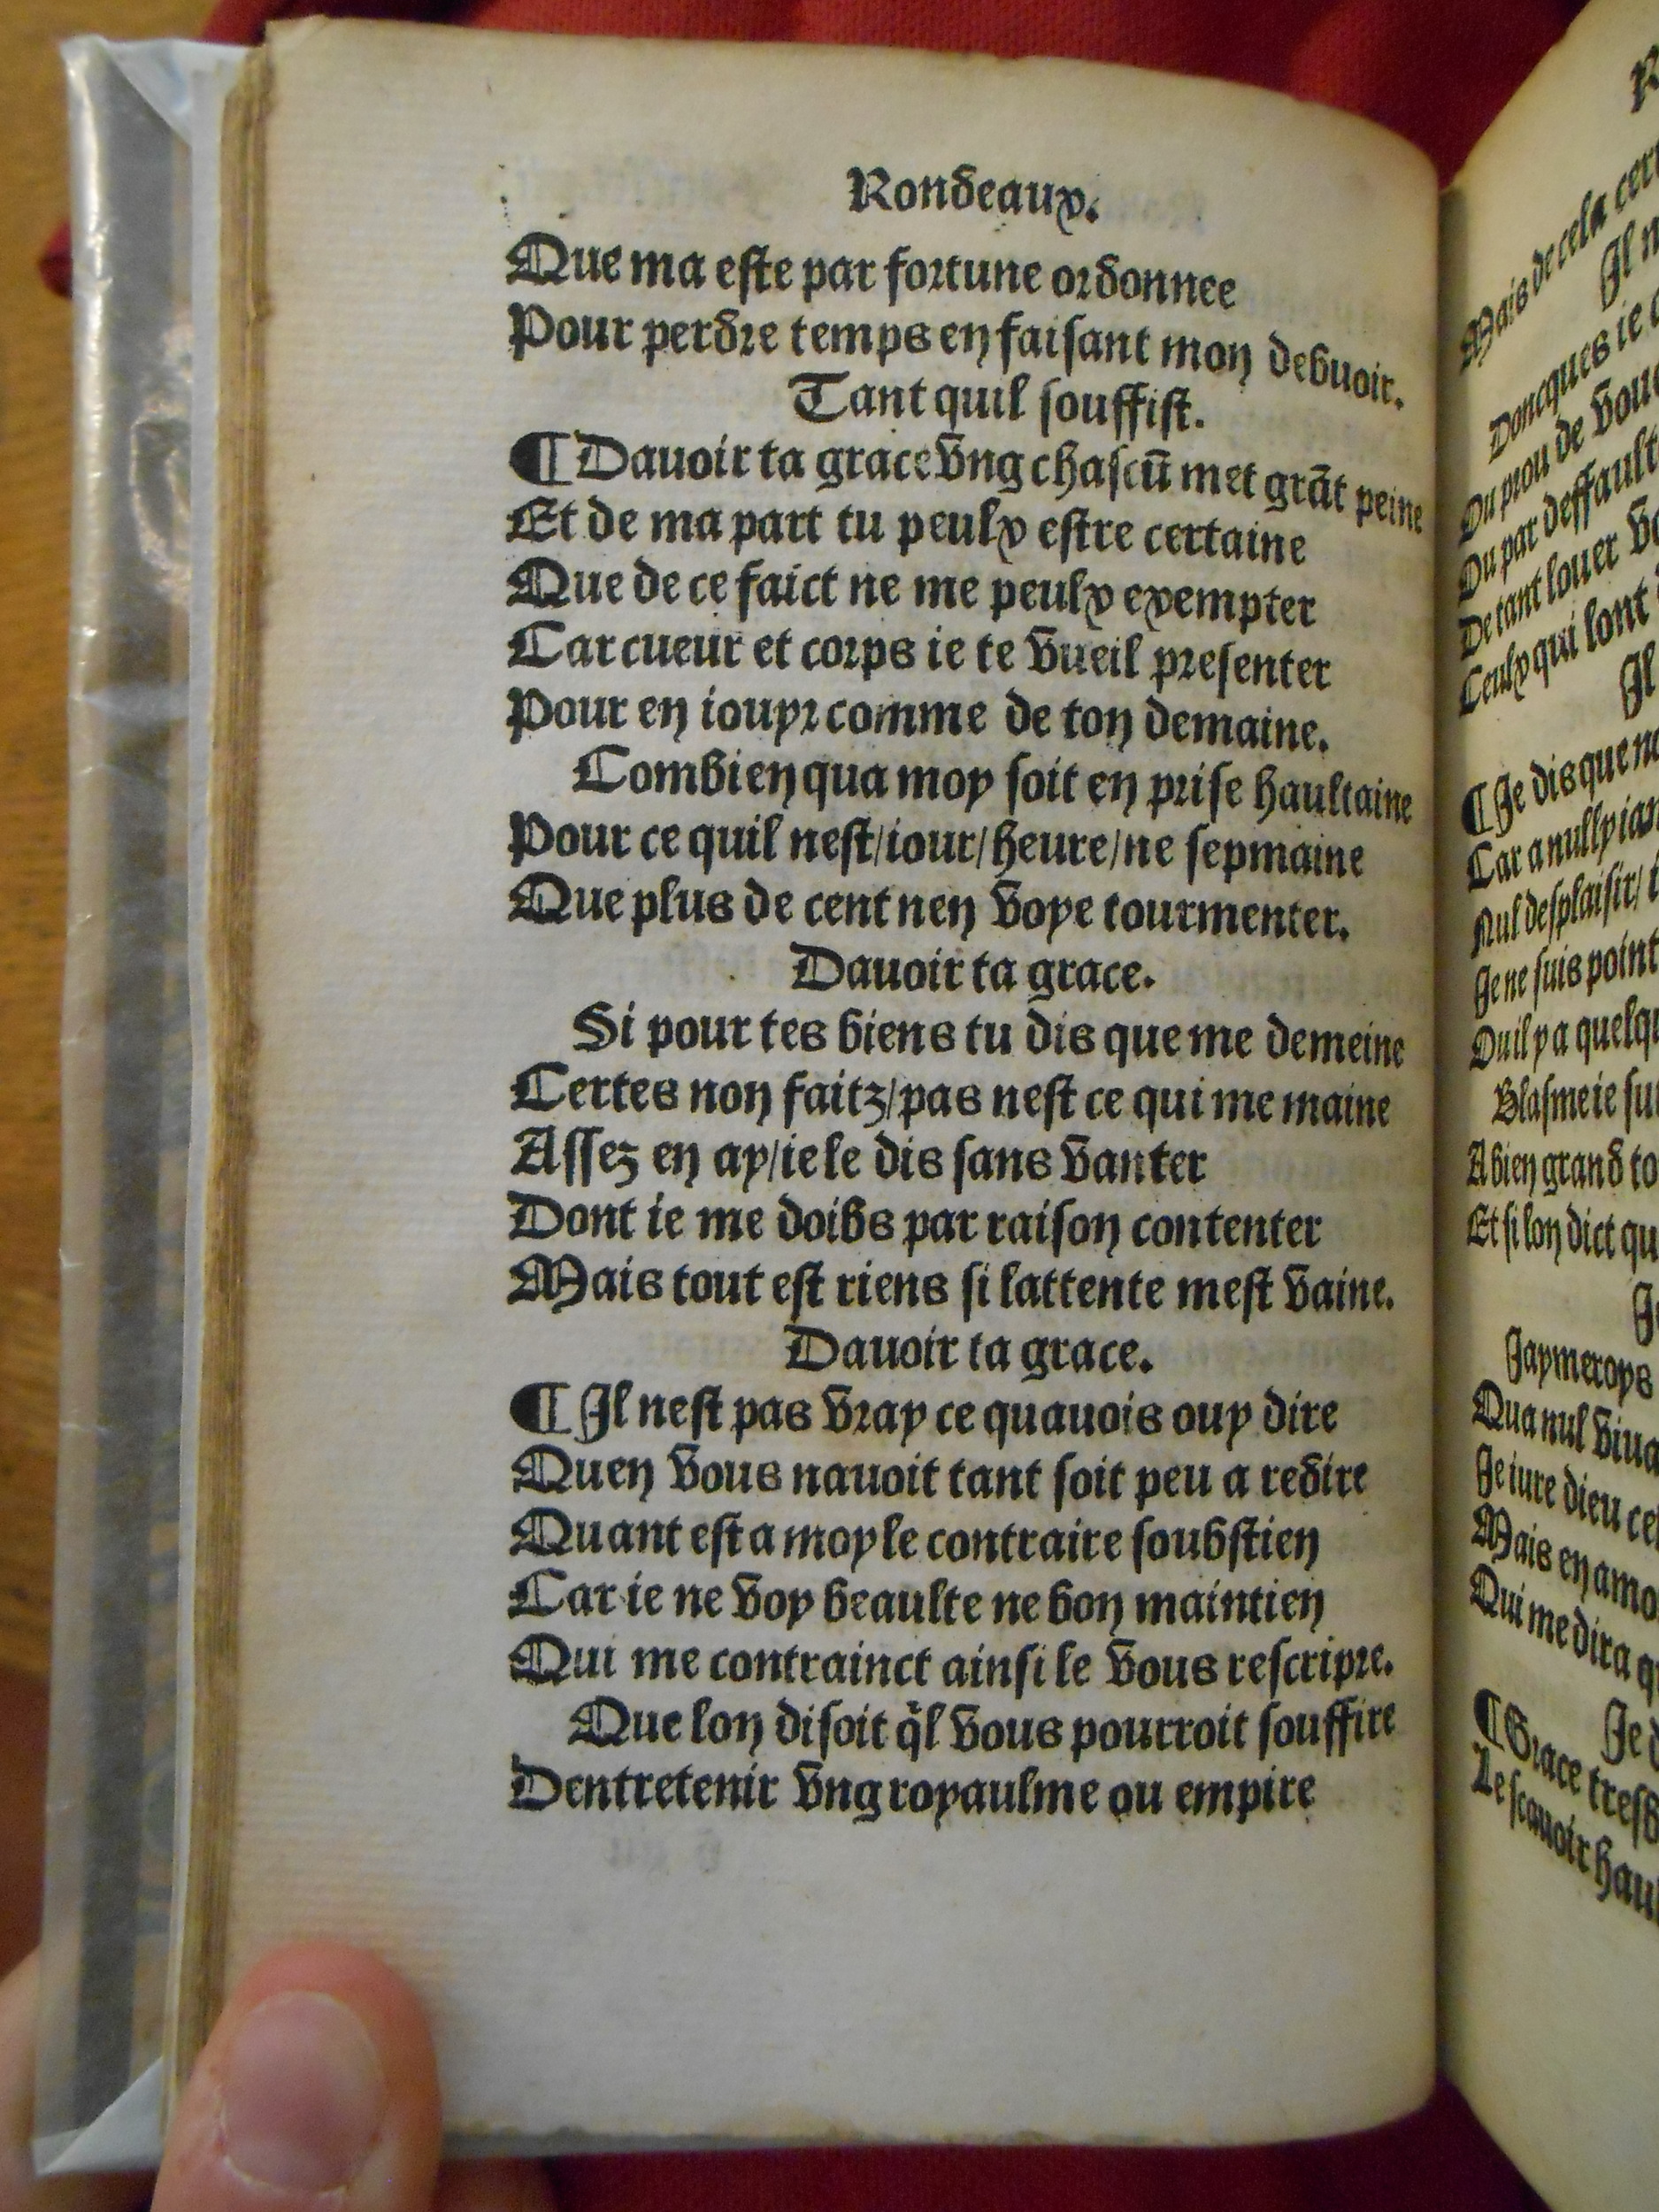 Rondeaux.
Que ma este par fortune ordonnee
Pour perdre temps en faisant mon debuoir.
Tant quil souffist.
¶ Dauoir ta grace vng chascũ met grãt peine
Et de ma part tu peulx estre certaine
Que de ce faict ne me peulx exempter
Car cueur et corps ie te vueil presenter
Pour en iouyr comme de ton demaine.
Combien qua moy soit en prise haultaine
Pour ce quil nest/iour/heure/ne sepmaine
Que plus de cent nen voye tourmenter.
Dauoir ta grace.
Si pour tes biens tu dis que me demeine
Certes non faitz/pas nest ce qui me maine
Assez en ay/ie le dis sans vanter
Dont ie me doibs par raison contenter
Mais tout est riens si lattente mest vaine.
Dauoir ta grace.
¶ Il nest pas vray ce quauois ouy dire
Quen vous nauoit tant soit peu a redire
Quant est a moy le contraire soubstien
Car ie ne voy beaulte ne bon maintien
Qui me contrainct ainsi le vous rescripre.
Que lon disoit q̃l vous pourroit souffire
Dentretenir vng royaulme ou empire
Mais de cela
Doncques ie
Ou prou de
Ou par deffault
De tant louer
Ceulx qui lont
Il
¶ Je dis que
Car a nully
Nul desplaisir/
Je ne suis point
Ouil y a
Blasme ie
A bien grand
Et si lon dict
Jaymerops
Qua nul
Je iure dieu
Mais en
Qui me dira
Je
¶ Grace
Le scauoir